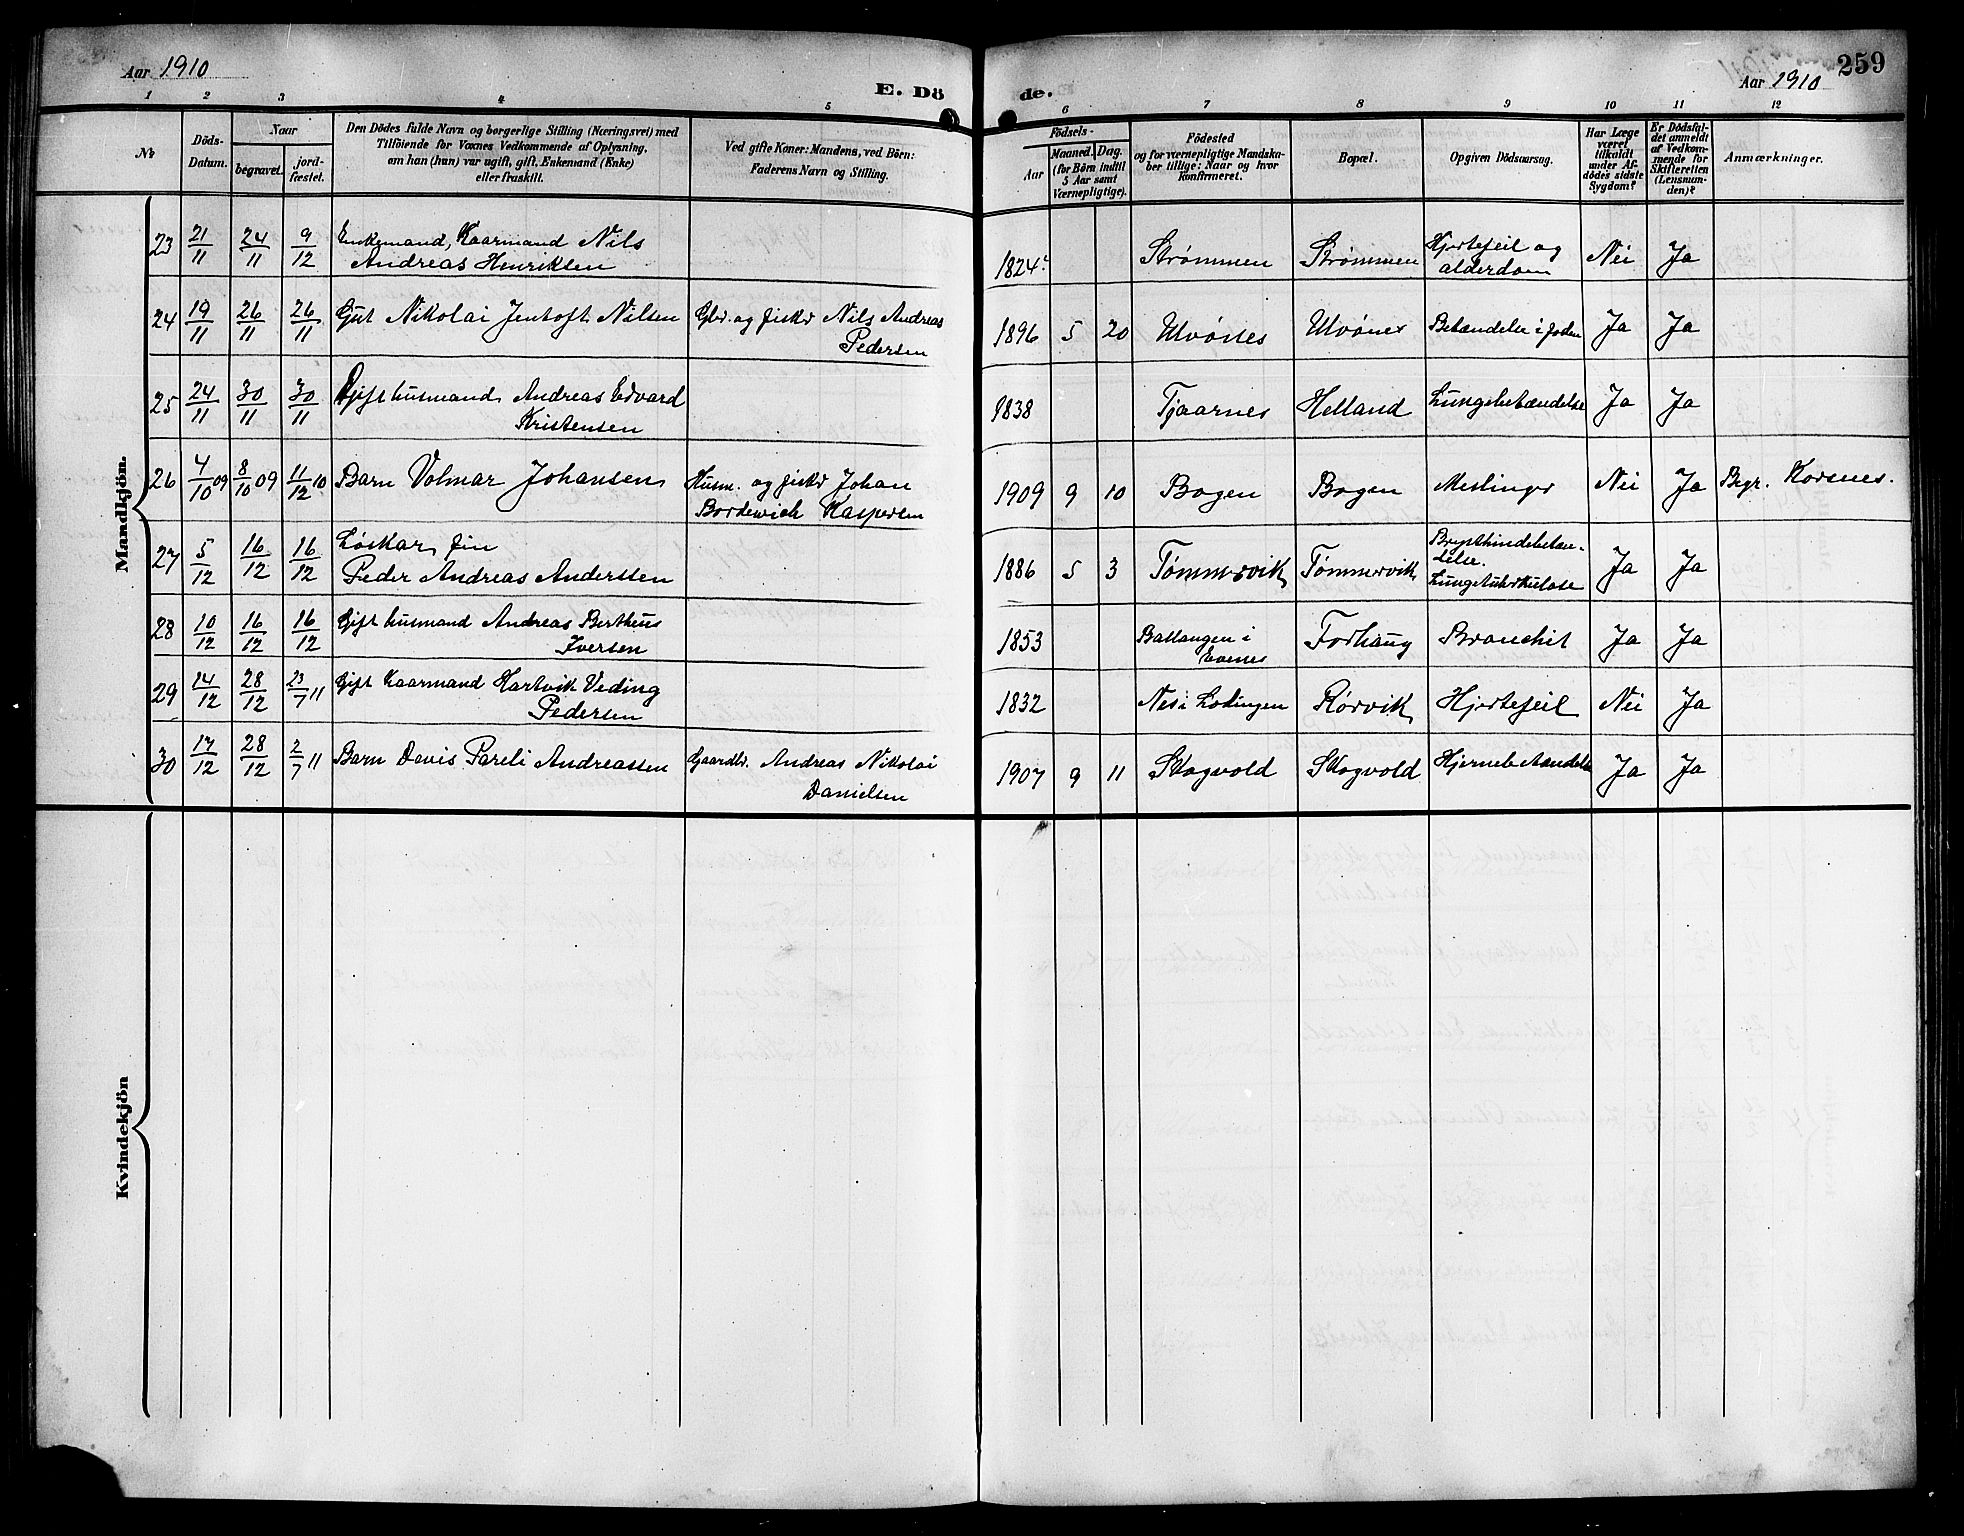 Aar 1910
E. Dö
de.
Aar 1910
259
1 2 3 4 5 6 7 8 9 10 11 12
No
Döds-
Datum.
Naar
begravet.
jord-
fæstet.
Den Dödes fulde Navn og borgerlige Stilling (Næringsvei) med
Tilföiende for Voxnes Vedkommende af Oplysning,
om han (hun) var ugift, gift, Enkemand (Enke)
eller fraskilt.
Ved gifte Koner: Mandens, ved Börn:
Faderens Navn og Stilling.
Födsels-
Aar
Maaned. Dag.
(for Börn indtil
5 Aar samt
Værnepligtige).
Födested
og for værnepligtige Mandska-
ber tillige: Naar og hvor
konfirmeret.
Bopæl.
Opgiven Dödsaarsag.
Har Læge
været
tilkaldt
under Af-
dödes sidste
Sygdom?
Er Dödsfal-
det anmeldt
af Vedkom-
mende for
Skifteretten
(Lensman-
den)?
Anmærkninger.
Mandkjön.
23 21/11 24/11 9/12 Enkemand, Kaarmand Nils
Andreas Henriksen
1824 Strømmen Strømmen Hjertefeil og
alderdom Nei Ja
24 19/11 26/11 26/11 Gut Nikolai Jentoft Nilsen Gbr. og fisker Nils Andreas
Pedersen
1896 5 20 Ulvønes Ulvønes Betændelse i foden Ja Ja
25 24/11 30/11 30/11 Gift husmand Andreas Edvard
Kristensen
1838 Tjaarnes Helland Lungebetændelse Ja Ja
26 4/10 09 8/10 09 11/12 10 Barn Volmar Johansen Husm. og fisker Johan
Bordewich Kaspersen
1909 9 10 Bogen Bogen Meslinger Nei Ja Begr. Korsnes.
27 5/12 16/12 16/12 Løskar, fin
Peder Andreas Anderssen
1886 5 3 Tømmervik Tømmervik Brysthindebetæn-
delse.
Lungetuberkulose Ja Ja
28 10/12 16/12 16/12 Gift husmand Andreas Bertheus
Iversen
1853 Ballangen i
Evenes Forhaug Bronchit Ja Ja
29 14/12 28/12 23/7 11 Gift Kaarmand Hartvik Veding
Pedersen
1832 Nes i Lødingen Rørvik Hjertefeil Nei Ja
30 17/12 28/12 2/7 11 Barn Davis Pareli Andreassen Gaardbr. Andreas Nikolai
Danielsen
1907 9 11 Skogvold Skogvold Hjernebetændelse Ja Ja
Kvindekjön